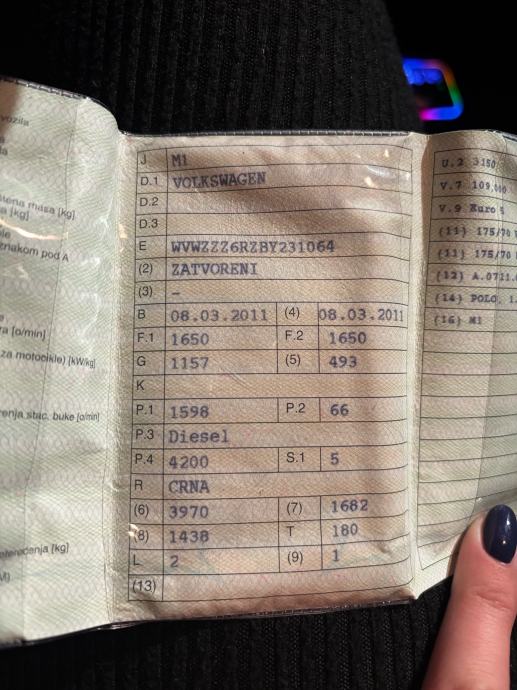 vozila
masa [kg]
[kg]
znakom pod A
[o/min]
za motocikle) [kW/kg]
stac. buke [o/min]
[kg]
J M1
D.1 VOLKSWAGEN
D.2
D.3
E WVWZZZ6RZBY231064
(2) ZATVORENI
(3) –
B 08.03.2011 (4) 08.03.2011
F.1 1650 F.2 1650
G 1157 (5) 493
K
P.1 1598 P.2 66
P.3 Diesel
P.4 4200 S.1 5
R CRNA
(6) 3970 (7) 1682
(8) 1438 T 180
L 2 (9) 1
(13)
U.2 3150
V.7 109,000
V.9 Euro 5
(11) 175/70
(11) 175/70
(12)
(14) POLO,
(16) M1